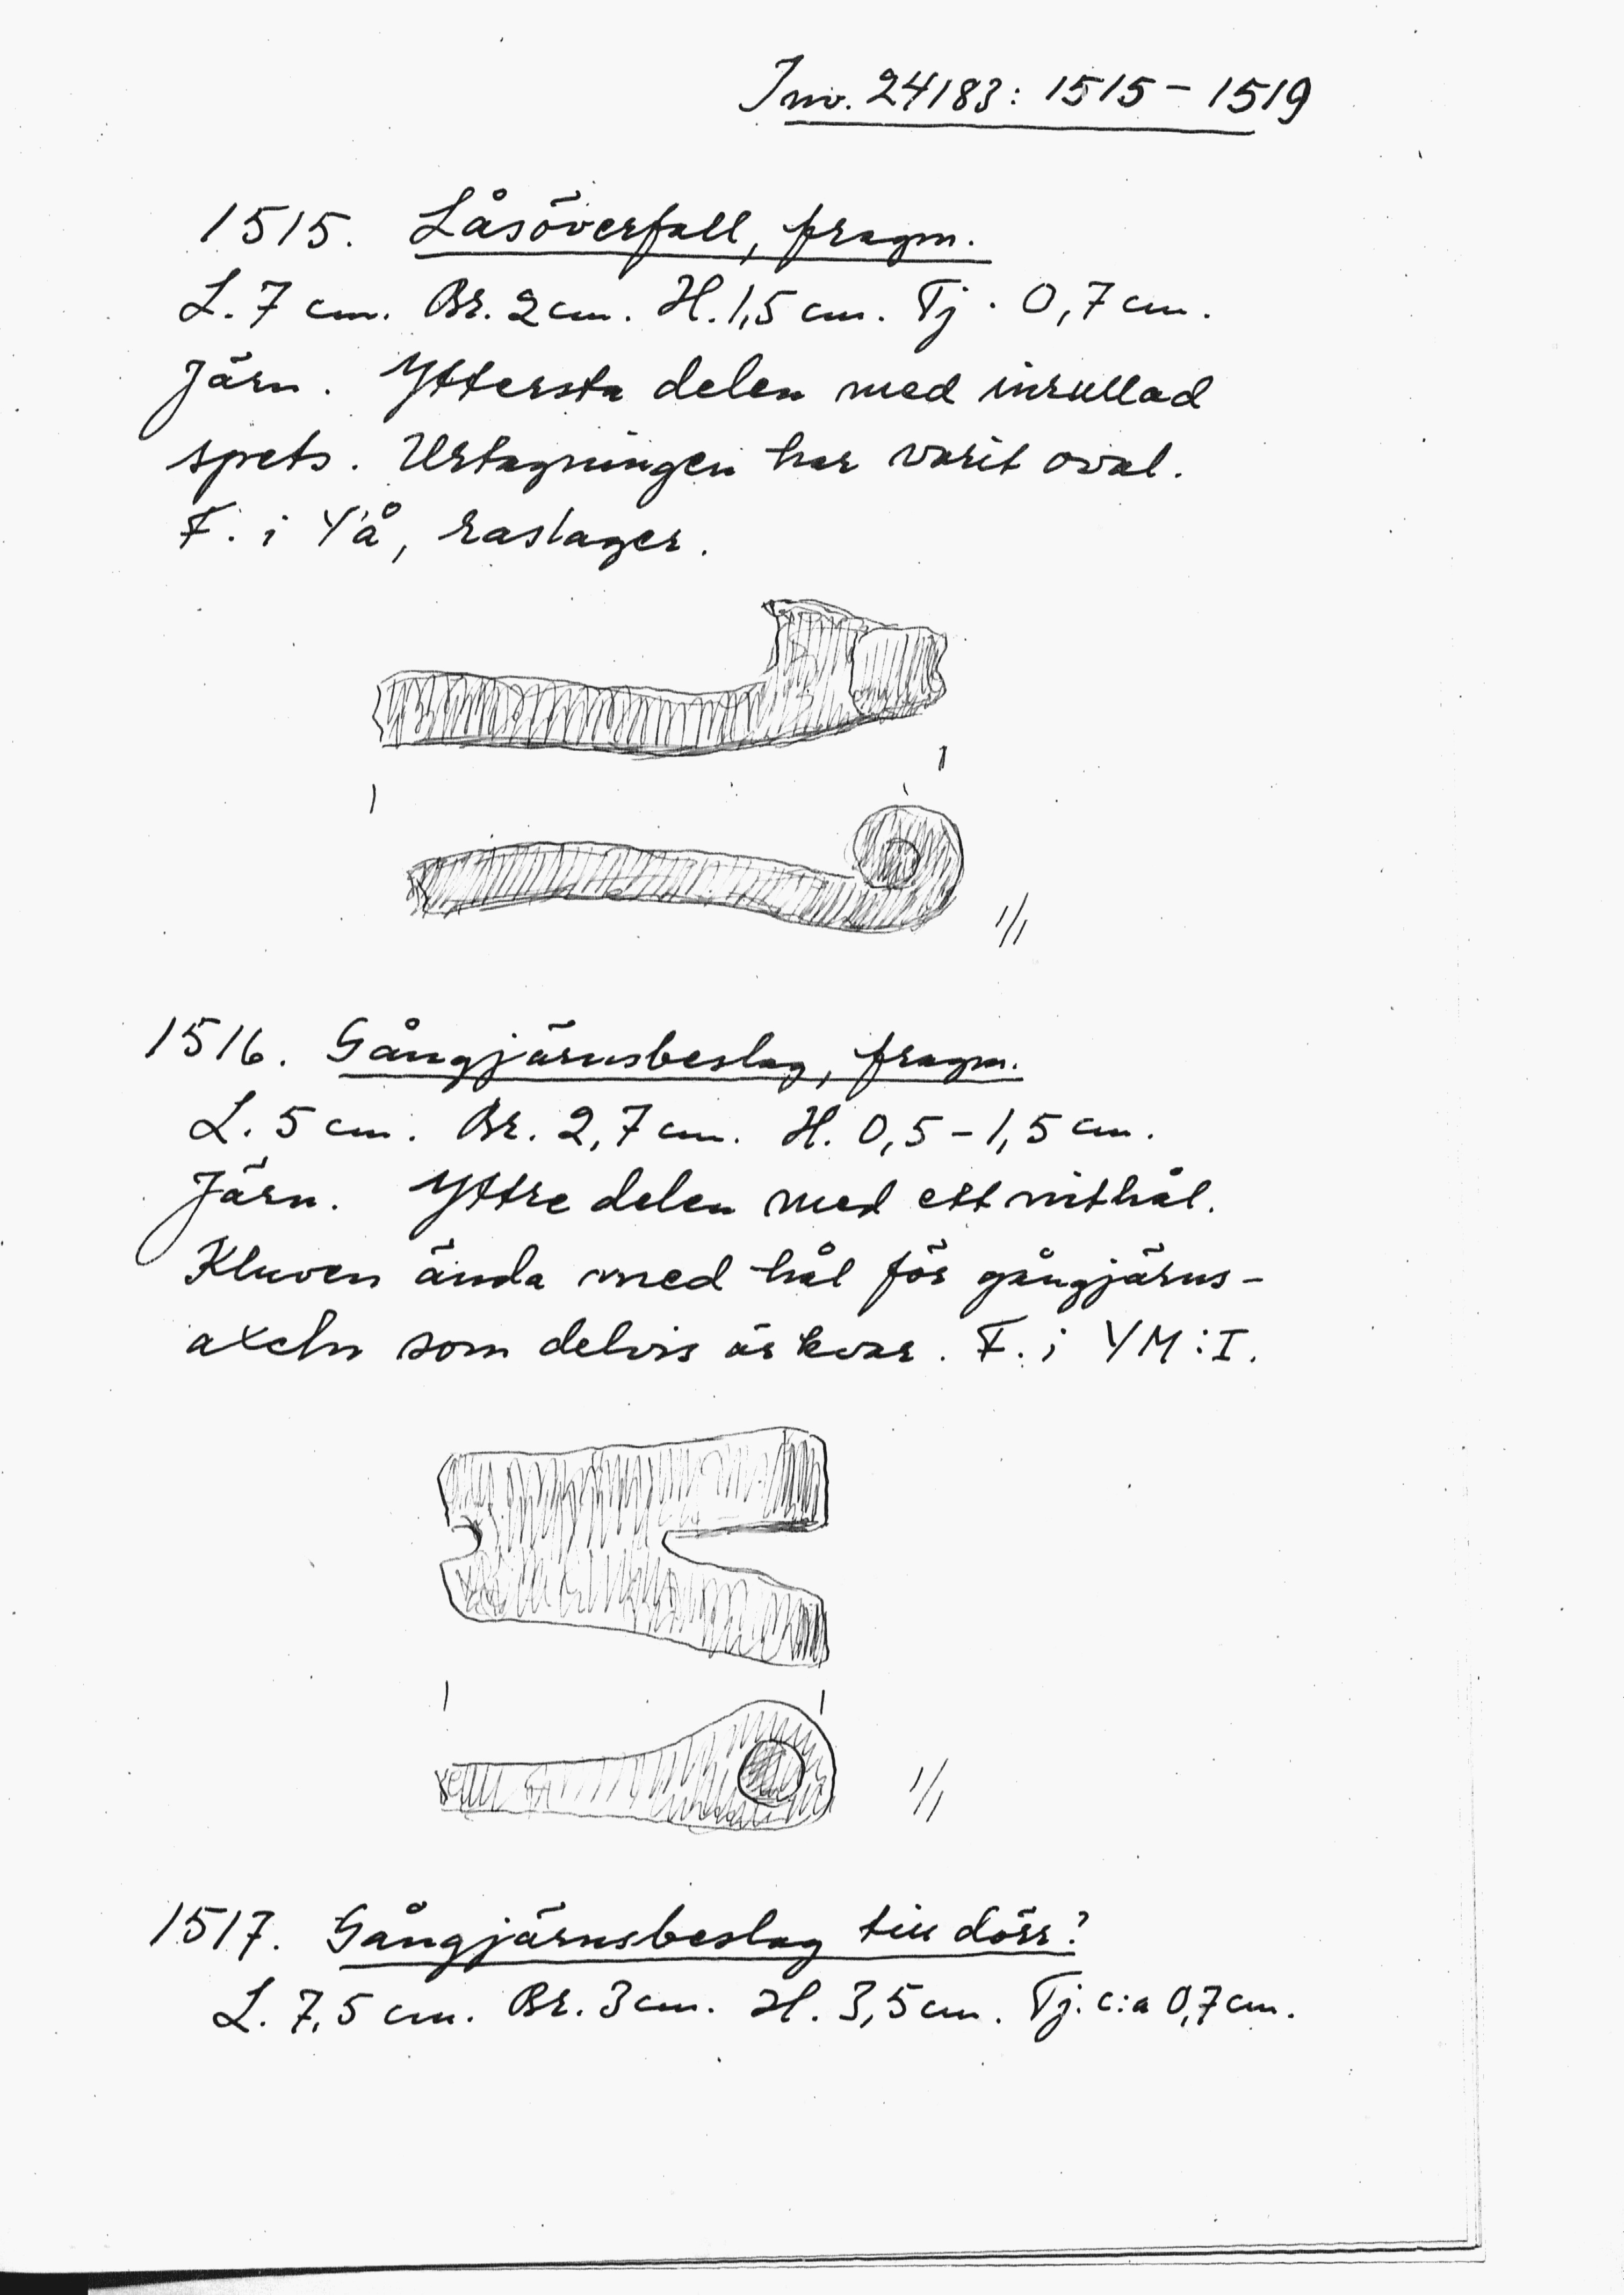 Inv. 24183: 1515 – 1519
1515. Låsöverfall, fragm.
L. 7 cm. Br. 2 cm. H. 1,5 cm. Tj. 0,7 cm.
Järn. Yttersta delen med inrullad
spets. Urtagningen har varit oval.
F. i Y'å, raslager.
1/1
1516. Gångjärnsbeslag, fragm.
L. 5 cm. Br. 2,7 cm. H. 0,5 – 1,5 cm.
Järn. Yttre delen med ett nithål.
Kluven ända med hål för gångjärns-
axeln som delvis är kvar. F. i YM:I.
1/1
1517. Gångjärnsbeslag till dörr?
L. 7,5 cm. Br. 3 cm. H. 3,5 cm. Tj. c:a 0,7 cm.